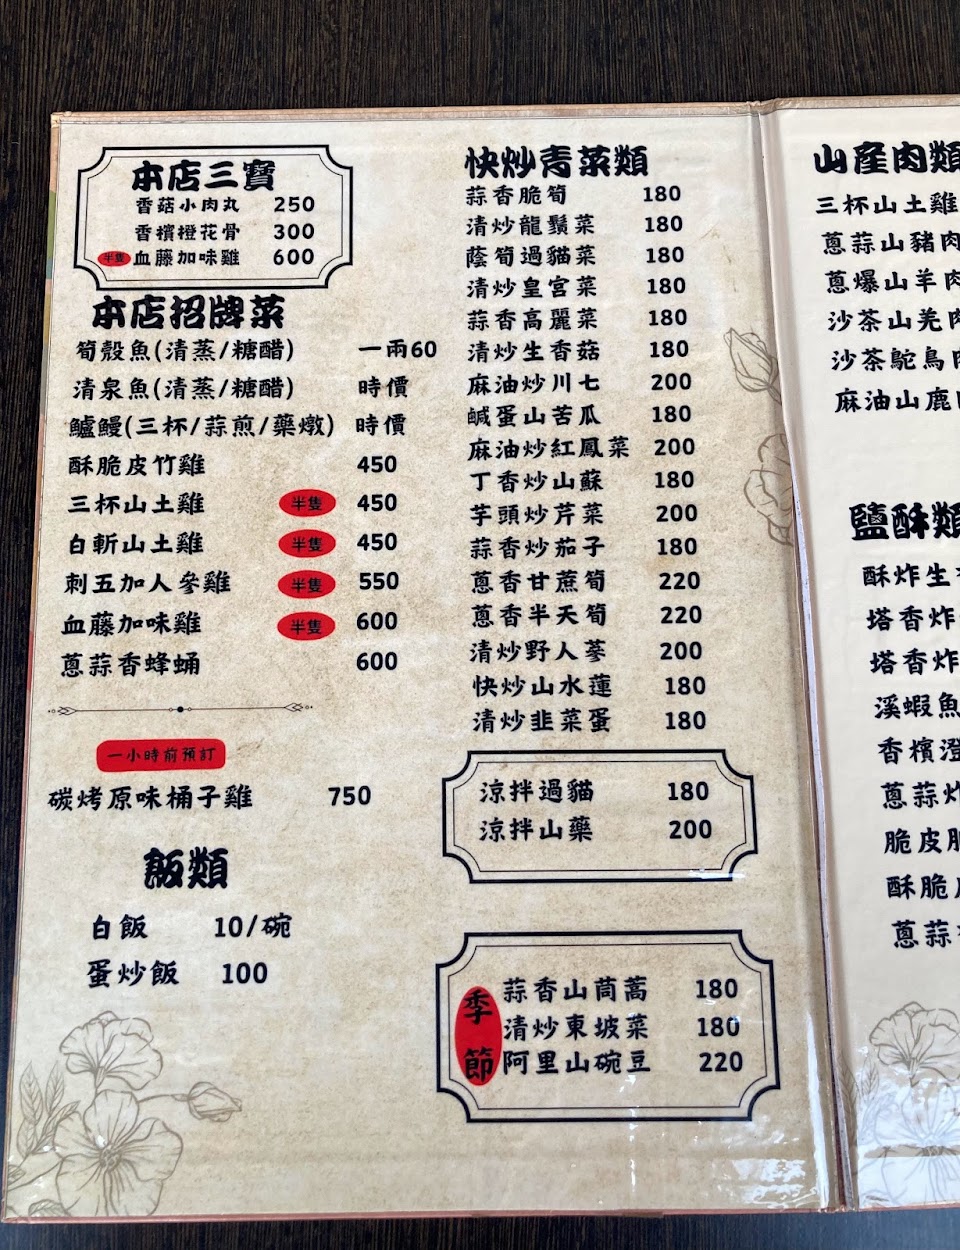 本店三寶
香菇小肉丸 250
香檳橙花骨 300
半隻 血藤加味雞 600
本店招牌菜
筍殼魚(清蒸/糖醋) 一兩60
清泉魚(清蒸/糖醋) 時價
鱸鰻(三杯/蒜煎/藥燉) 時價
酥脆皮竹雞 450
三杯山土雞 半隻 450
白斬山土雞 半隻 450
刺五加人參雞 半隻 550
血藤加味雞 半隻 600
蔥蒜香蜂蛹 600
一小時前預訂
碳烤原味桶子雞 750
飯類
白飯 10/碗
蛋炒飯 100
快炒青菜類
蒜香脆筍 180
清炒龍鬚菜 180
蔭筍過貓菜 180
清炒皇宮菜 180
蒜香高麗菜 180
清炒生香菇 180
麻油炒川七 200
鹹蛋山苦瓜 180
麻油炒紅鳳菜 200
丁香炒山蘇 180
芋頭炒芹菜 200
蒜香炒茄子 180
蔥香甘蔗筍 220
蔥香半天筍 220
清炒野人蔘 200
快炒山水蓮 180
清炒韭菜蛋 180
涼拌過貓 180
涼拌山藥 200
季節
蒜香山茼蒿 180
清炒東坡菜 180
阿里山碗豆 220
山產肉類
三杯山土雞
蔥蒜山豬肉
蔥爆山羊肉
沙茶山羌肉
沙茶鴕鳥肉
麻油山鹿
鹽酥類
酥炸生
塔香炸
塔香炸
溪蝦魚
香檳澄
蔥蒜炸
脆皮
酥脆
蔥蒜